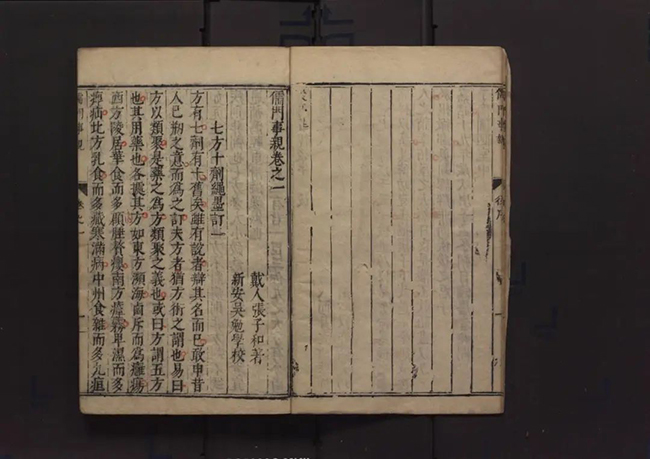 儒門事親卷之一
戴人張子和著
新安吳勉學校
七方十劑繩墨訂一
方有七劑有十舊矣雖有說者辯其名而已敢申昔
人已剏之意而為之訂夫方者猶方術之謂也易曰
方以類聚是藥之為方類聚之義也或曰方謂五方
也其用藥也各據其方如東方瀕海鹵斥而為癰瘍
西方陵居華食而多頤腫贅癭南方瘴霧卑濕而多
痹疝北方乳食而多藏寒滿病中州食雜而多九疸
儒門事親
卷之一